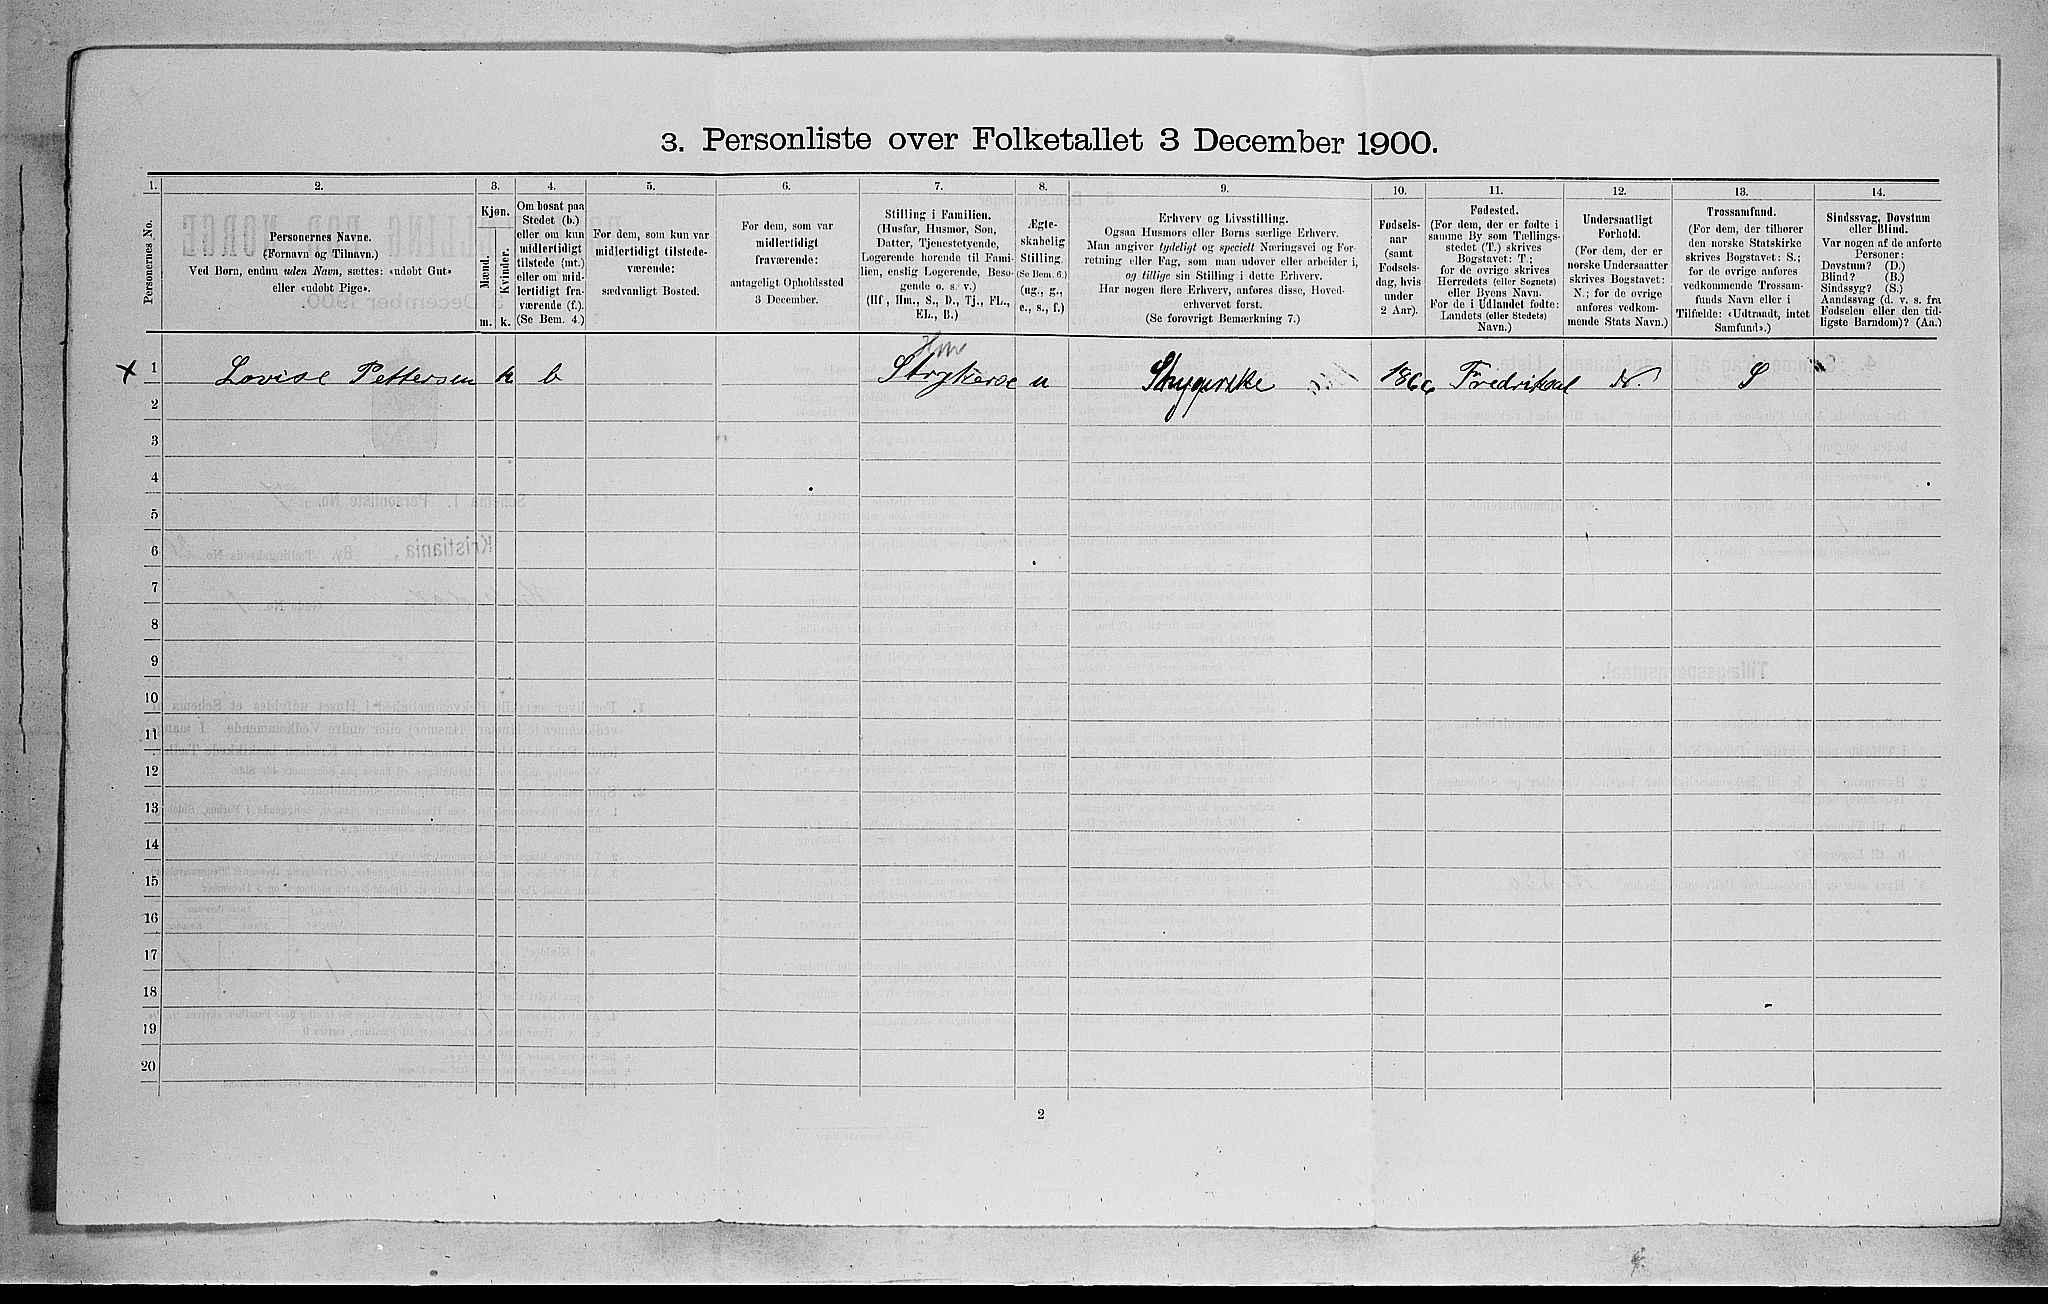 3. Personliste over Folketallet 3 December 1900.
1. 2. 3. 4. 5. 6. 7. 8. 9. 10. 11. 12. 13. 14.
Personernes No.
Personernes Navne.
(Fornavn og Tilnavn.)
Ved Børn, endnu uden Navn, sættes: «udøbt Gut»
eller «udøbt Pige».
Kjøn.
Mænd.
Kvinder.
m. k.
Om bosat paa
Stedet (b.)
eller om kun
midlertidigt
tilstede (mt.)
eller om mid-
lertidigt fra-
værende (f.).
(Se Bem. 4.)
For dem, som kun var
midlertidigt tilstede-
værende:
sædvanligt Bosted.
For dem, som var
midlertidigt
fraværende:
antageligt Opholdssted
3 December.
Stilling i Familien.
(Husfar, Husmor, Søn,
Datter, Tjenestetyende,
Logerende hørende til Fami-
lien, enslig Logerende, Besø-
gende o. s. v.)
(Hf, Hm., S., D., Tj., FL.,
EL., B.)
Ægte-
skabelig
Stilling.
(Se Bem. 6.)
(ug., g.,
e., s., f.)
Erhverv og Livsstilling.
Ogsaa Husmors eller Børns særlige Erhverv.
Man angiver tydeligt og specielt Næringsvei og For-
retning eller Fag, som man udøver eller arbeider i,
og tillige sin Stilling i dette Erhverv.
Har nogen flere Erhverv, anføres disse, Hoved-
erhvervet først.
(Se forøvrigt Bemærkning 7.)
Fødsels-
aar
(samt
Fødsels-
dag, hvis
under
2 Aar).
Fødested.
(For dem, der er fødte i
samme By som Tællings-
stedet (T.) skrives
Bogstavet: T.;
for de øvrige skrives
Herredets (eller Sognets)
eller Byens Navn.
For de i Udlandet fødte:
Landets (eller Stedets)
Navn.)
Undersaatligt
Forhold.
(For dem, der er
norske Undersaatter
skrives Bogstavet:
N.; for de øvrige
anføres vedkom-
mende Stats Navn.)
Trossamfund.
(For dem, der tilhører
den norske Statskirke
skrives Bogstavet: S.;
for de øvrige anføres
vedkommende Trossam-
funds Navn eller i
Tilfælde: «Udtraadt, intet
Samfund».)
Sindssvag, Døvstum
eller Blind.
Var nogen af de anførte
Personer:
Døvstum? (D.)
Blind? (B.)
Sindssyg? (S.)
Aandssvag (d. v. s. fra
Fødselen eller den tid-
ligste Barndom)? (Aa.)
Hm
x 1 Lovise Pettersen k b u 1866 N. S
2
3
4
5
6
7
8
9
10
11
12
13
14
15
16
17
18
19
20
2